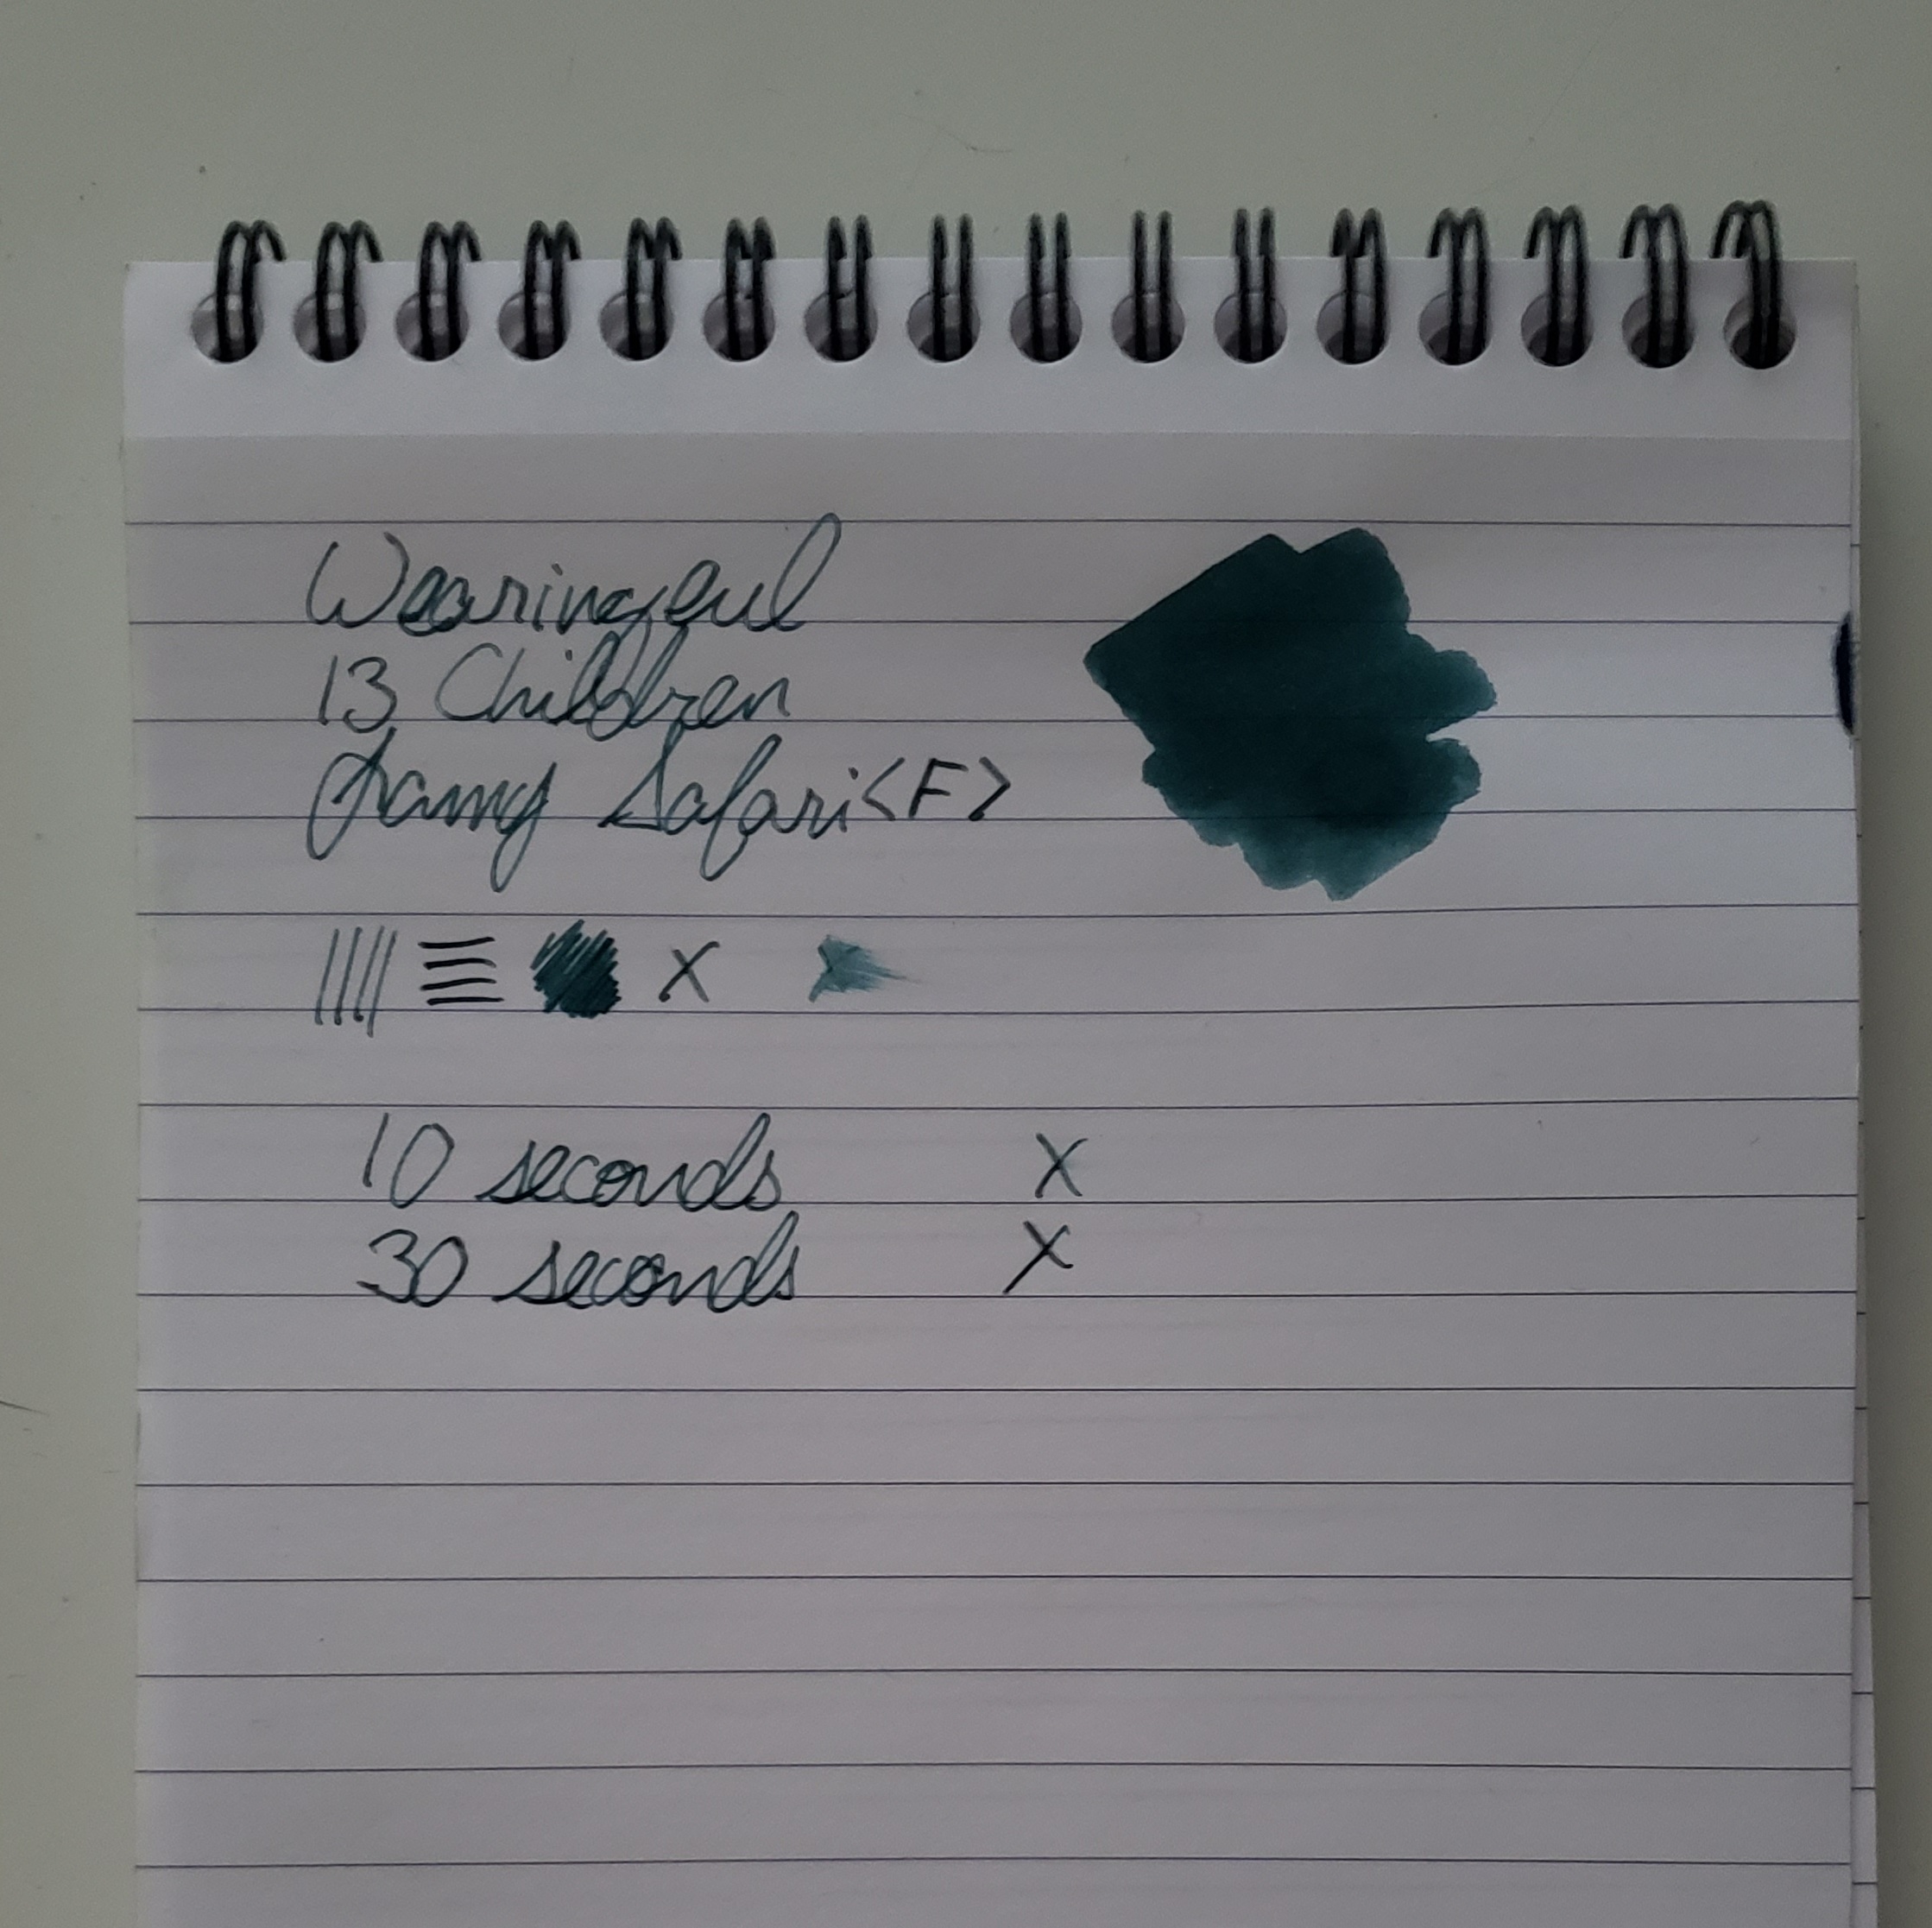 Wearingeul
13 Children
Lamy Safari <F>
X
10 seconds X
30 seconds X